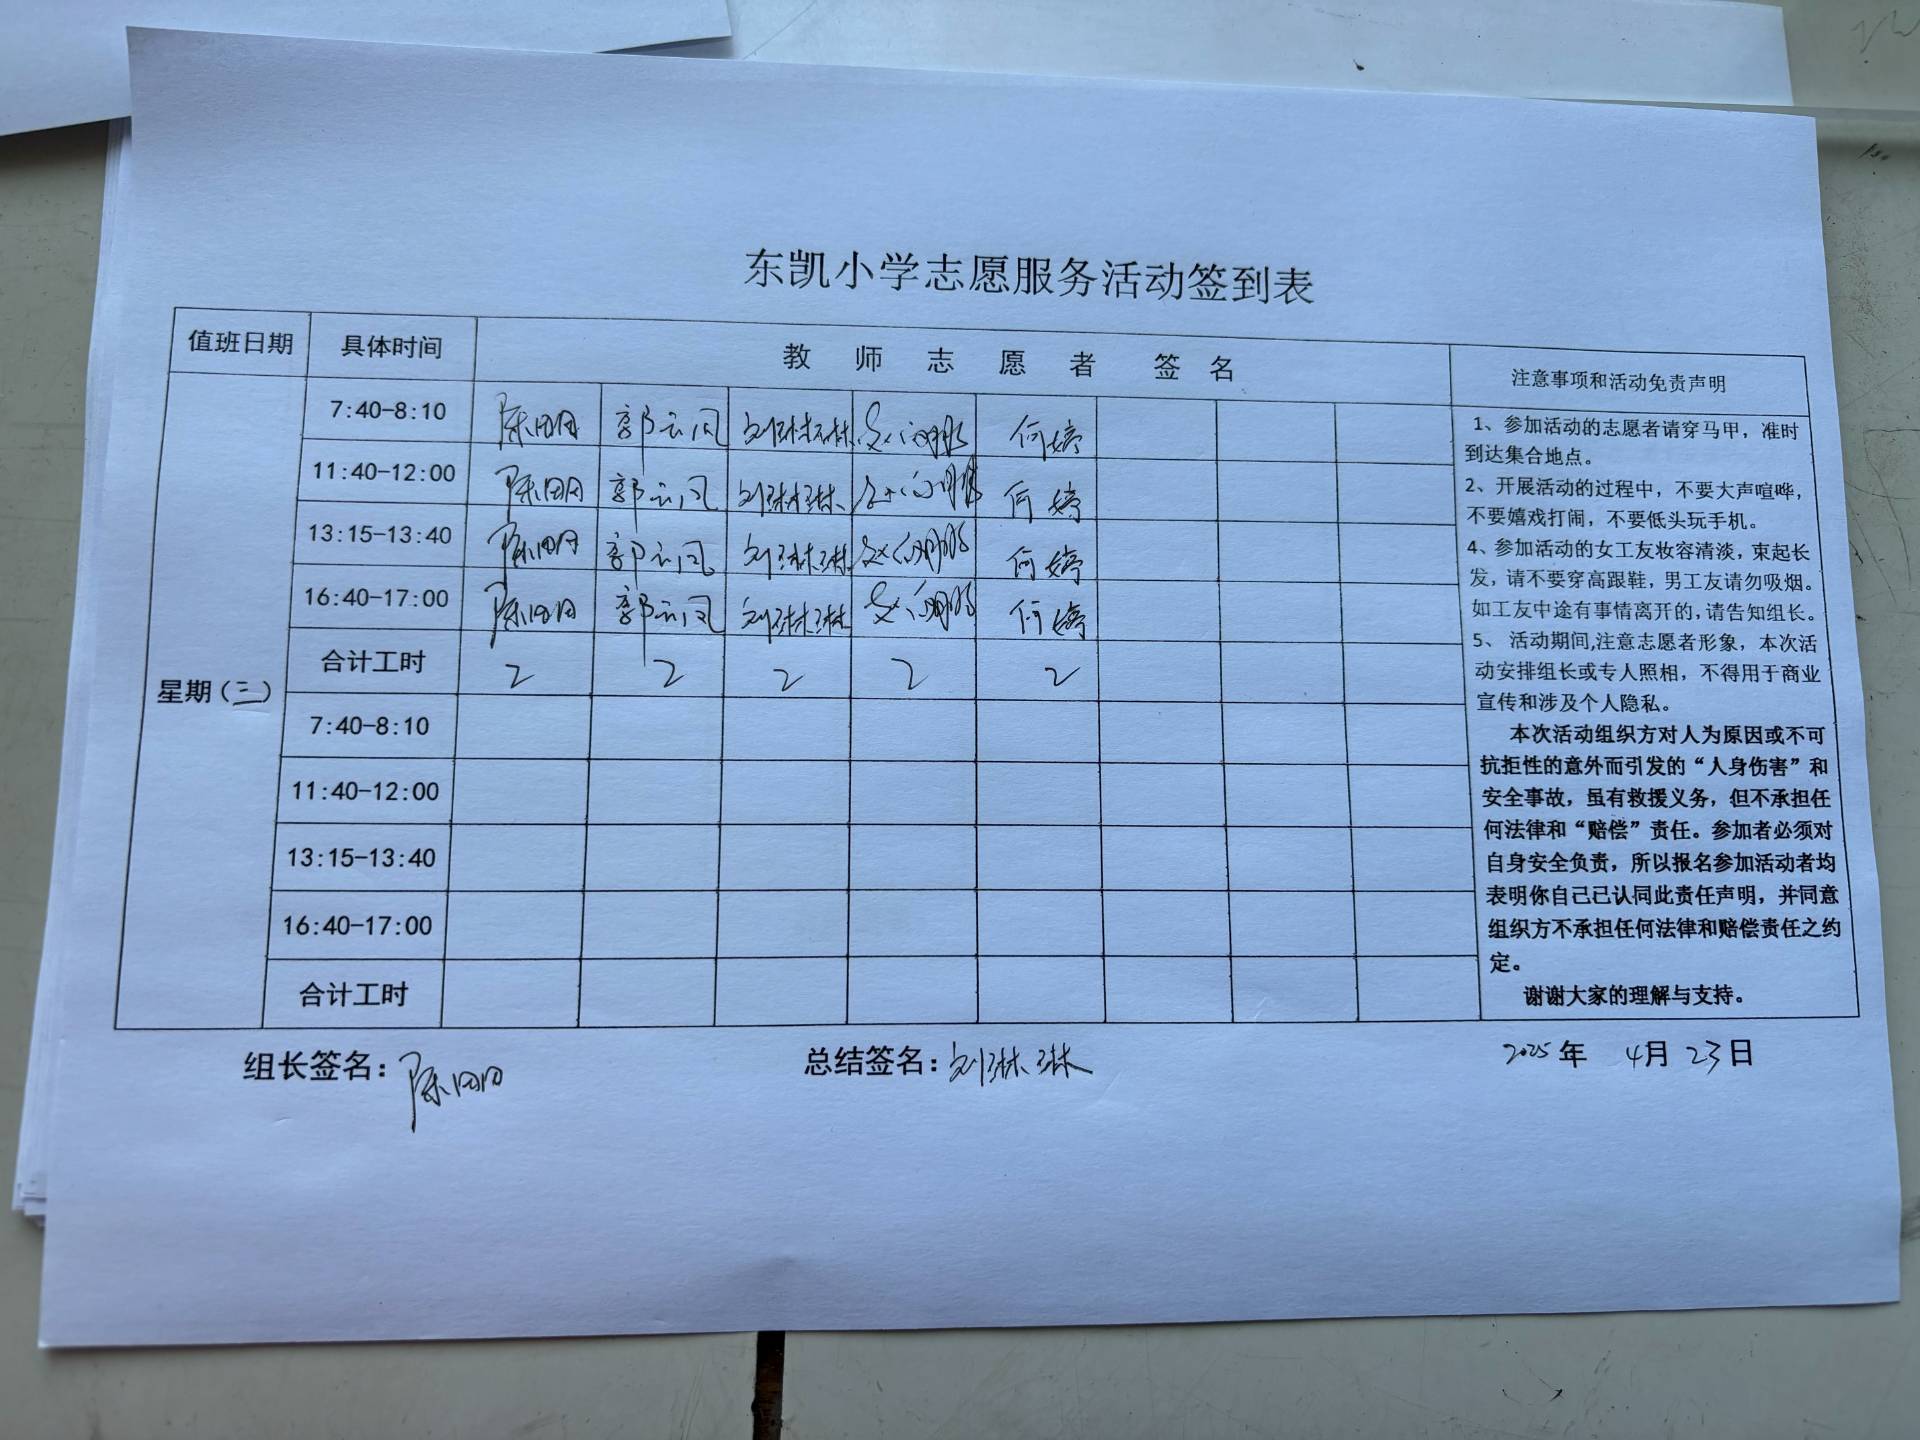 东凯小学志愿服务活动签到表
值班日期 具体时间 教师志愿者签名 注意事项和活动免责声明
7:40-8:10 陈明明 郭云凤 刘琳琳 何婷
11:40-12:00 陈明明 郭云凤 刘琳琳 何婷
13:15-13:40 陈明明 郭云凤 刘琳琳 何婷
16:40-17:00 陈明明 郭云凤 刘琳琳 何婷
合计工时 2 2 2 2 2
星期(三)
7:40-8:10
11:40-12:00
13:15-13:40
16:40-17:00
合计工时
1、参加活动的志愿者请穿马甲，准时
到达集合地点。
2、开展活动的过程中，不要大声喧哗，
不要嬉戏打闹，不要低头玩手机。
4、参加活动的女工友妆容清淡，束起长
发，请不要穿高跟鞋，男工友请勿吸烟。
如工友中途有事情离开的，请告知组长。
5、 活动期间,注意志愿者形象，本次活
动安排组长或专人照相，不得用于商业
宣传和涉及个人隐私。
本次活动组织方对人为原因或不可
抗拒性的意外而引发的“人身伤害”和
安全事故，虽有救援义务，但不承担任
何法律和“赔偿”责任。参加者必须对
自身安全负责，所以报名参加活动者均
表明你自己已认同此责任声明，并同意
组织方不承担任何法律和赔偿责任之约
定。
谢谢大家的理解与支持。
组长签名：陈明明 总结签名：刘琳琳 2025年 4月 23日